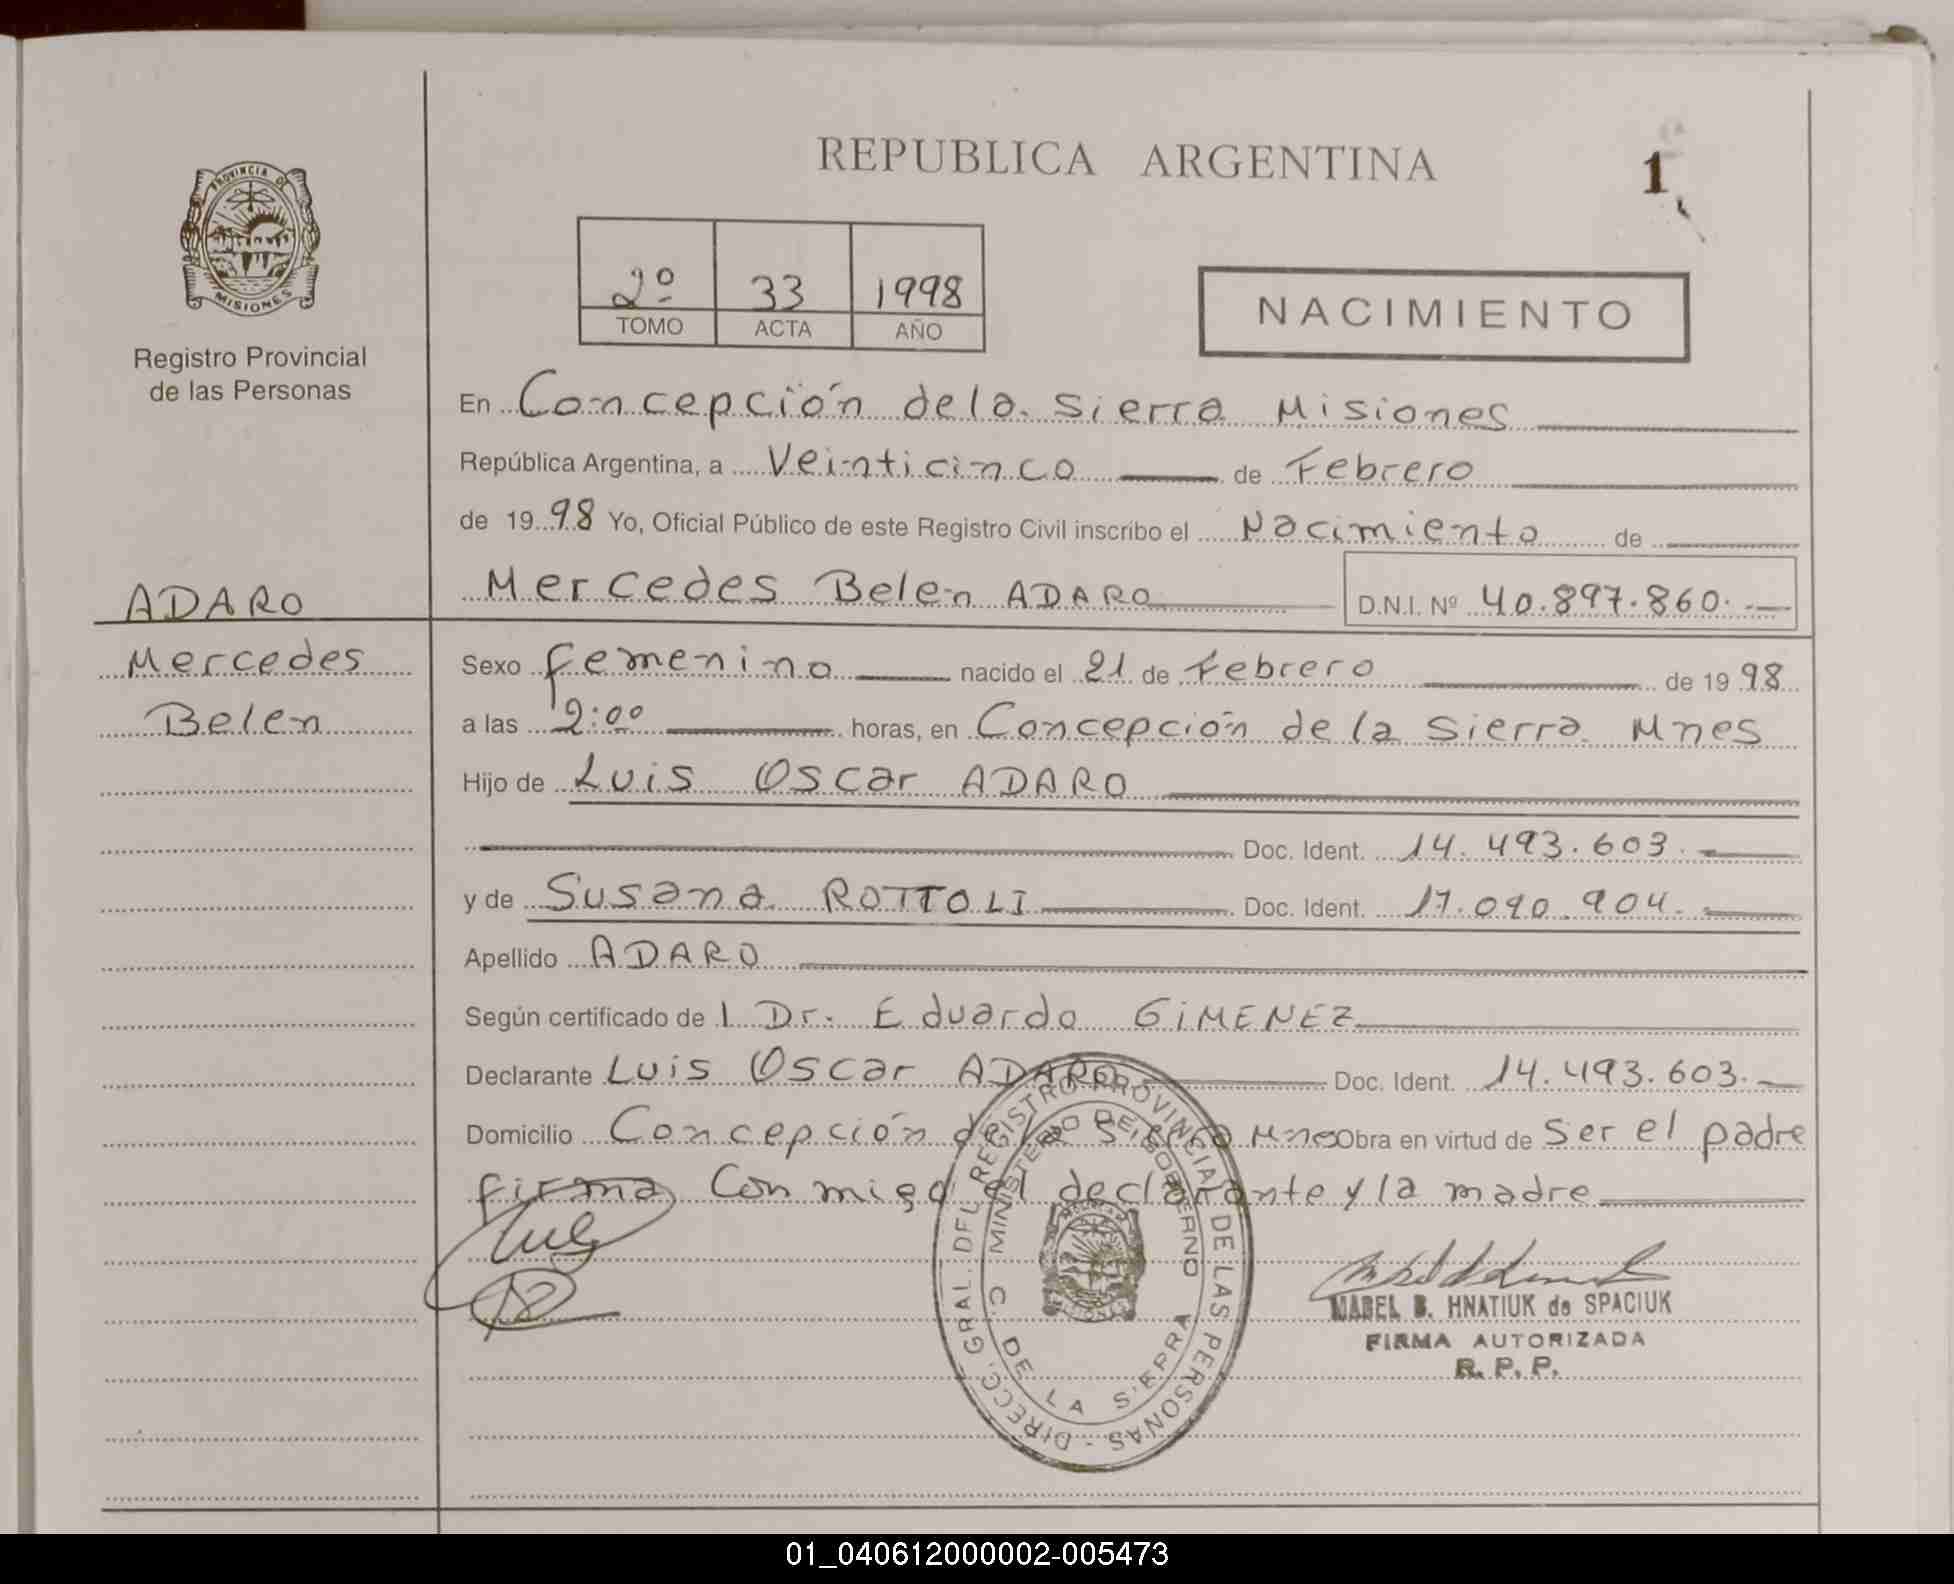 PROVINCIA DE
MISIONES
Registro Provincial
de las Personas
REPUBLICA ARGENTINA
1
2º 33 1998
TOMO ACTA AÑO
NACIMIENTO
En Concepción de la Sierra Misiones
República Argentina, a Veinticinco de Febrero
de 1998 Yo, Oficial Público de este Registro Civil inscribo el Nacimiento de
ADARO
Mercedes Belen ADARO D.N.I. Nº 40.897.860.-
Mercedes
Sexo femenino nacido el 21 de Febrero de 1998
Belen
a las 2:00 horas, en Concepción de la Sierra Mnes
Hijo de Luis Oscar ADARO
Doc. Ident. 14.493.603.
y de Susana ROTTOLI Doc. Ident. 17.090.904.
Apellido ADARO
Según certificado de l Dr. Eduardo GIMENEZ
Declarante Luis Oscar ADARO Doc. Ident. 14.493.603.
Domicilio Concepción de la Sierra Mnes Obra en virtud de Ser el padre
firma Conmigo el declarante y la madre
DIRECC. GRAL. DEL REGISTRO PROVINCIAL DE LAS PERSONAS -
MINISTERIO DE GOBIERNO
C. DE LA SIERRA
MABEL B. HNATIUK de SPACIUK
FIRMA AUTORIZADA
R. P. P.
01_040612000002-005473